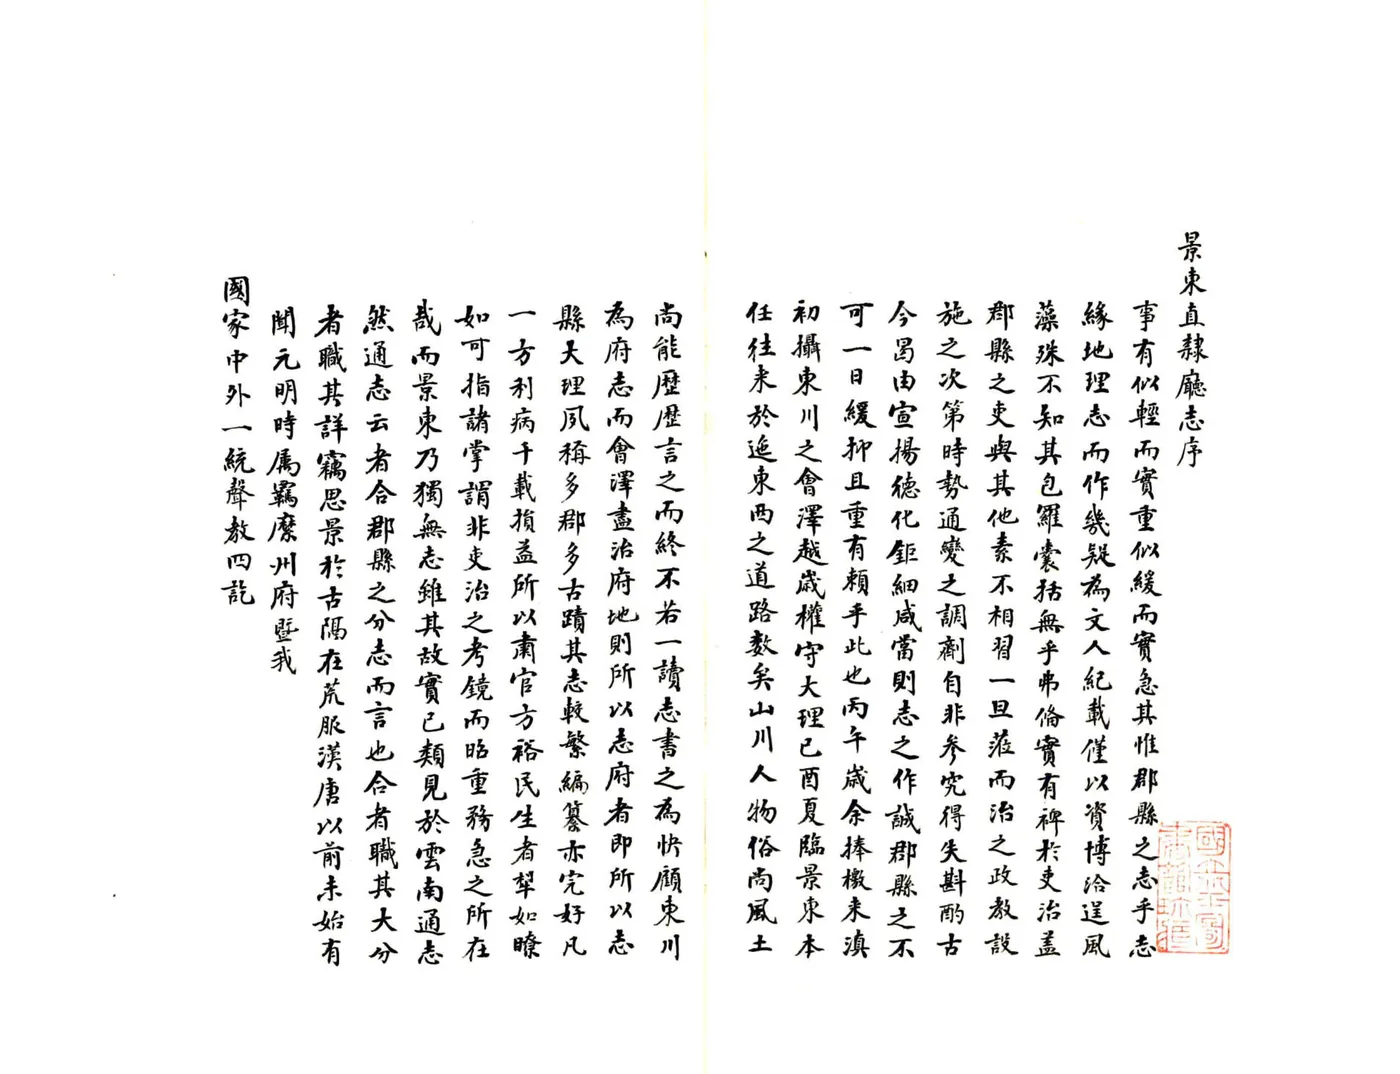 景東直隸廳志序
事有似輕而實重似緩而實急其惟郡縣之志乎志
緣地理志而作幾疑為文人紀載僅以資博洽逞風
藻殊不知其包羅囊括無乎弗備實有裨於吏治蓋
郡縣之吏與其他素不相習一旦蒞而治之政教設
施之次第時勢通變之調劑自非參究得失斟酌古
今曷由宣揚德化鉅細咸當則志之作誠郡縣之不
可一日緩抑且重有賴乎此也丙午歲余捧檄来滇
初攝東川之會澤越歲權守大理己酉夏臨景東本
任往来於迤東西之道路數矣山川人物俗尚風土
尚能歷歷言之而終不若一讀志書之為快顧東川
為府志而會澤盡治府地則所以志府者即所以志
縣大理夙稱多郡多古蹟其志較繁編纂亦完好凡
一方利病千載損益所以肅官方裕民生者犂如瞭
如可指諸掌謂非吏治之考鏡而昭重務急之所在
哉而景東乃獨無志雖其故實已類見於雲南通志
然通志云者合郡縣之分志而言也合者職其大分
者職其詳竊思景於古隅在荒服漢唐以前未始有
聞元明時属羈縻州府暨我
國家中外一統聲教四訖